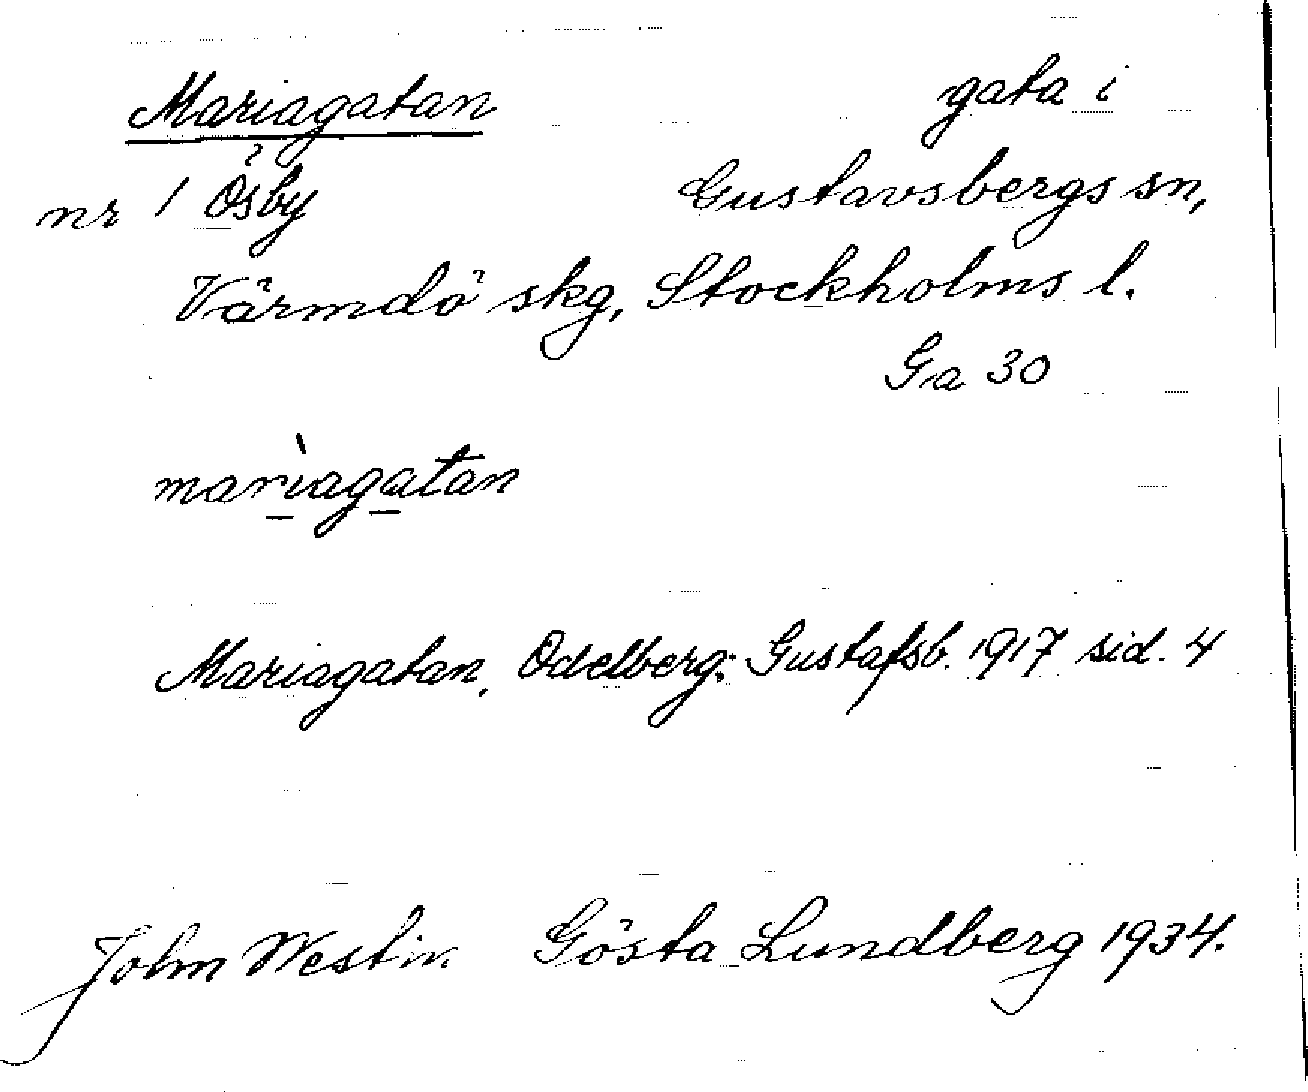 Mariagatan gata i
nr 1 Ösby Gustavsbergs sn,
Värmdö skg, Stockholms l.
Ga 30
marìagatan
Mariagatan, Odelberg: Gustafsb. 1917 sid. 4
John Westin Gösta Lundberg 1934.